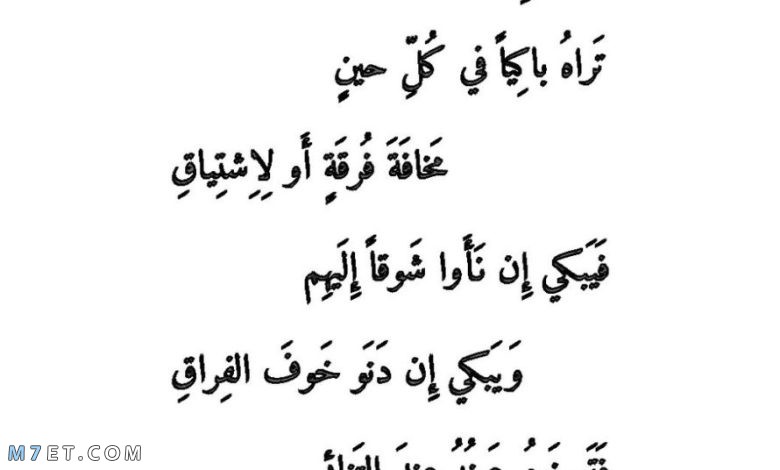 تَراهُ باكِياً في كُلِّ حينٍ
مَخافَةَ فُرقَةٍ أَو لِاِشتِياقِ
فَيَبكي إِن نَأَوا شَوقاً إِلَيهِم
وَيَبكي إِن دَنَو خَوفَ الفِراقِ
M7ET.COM